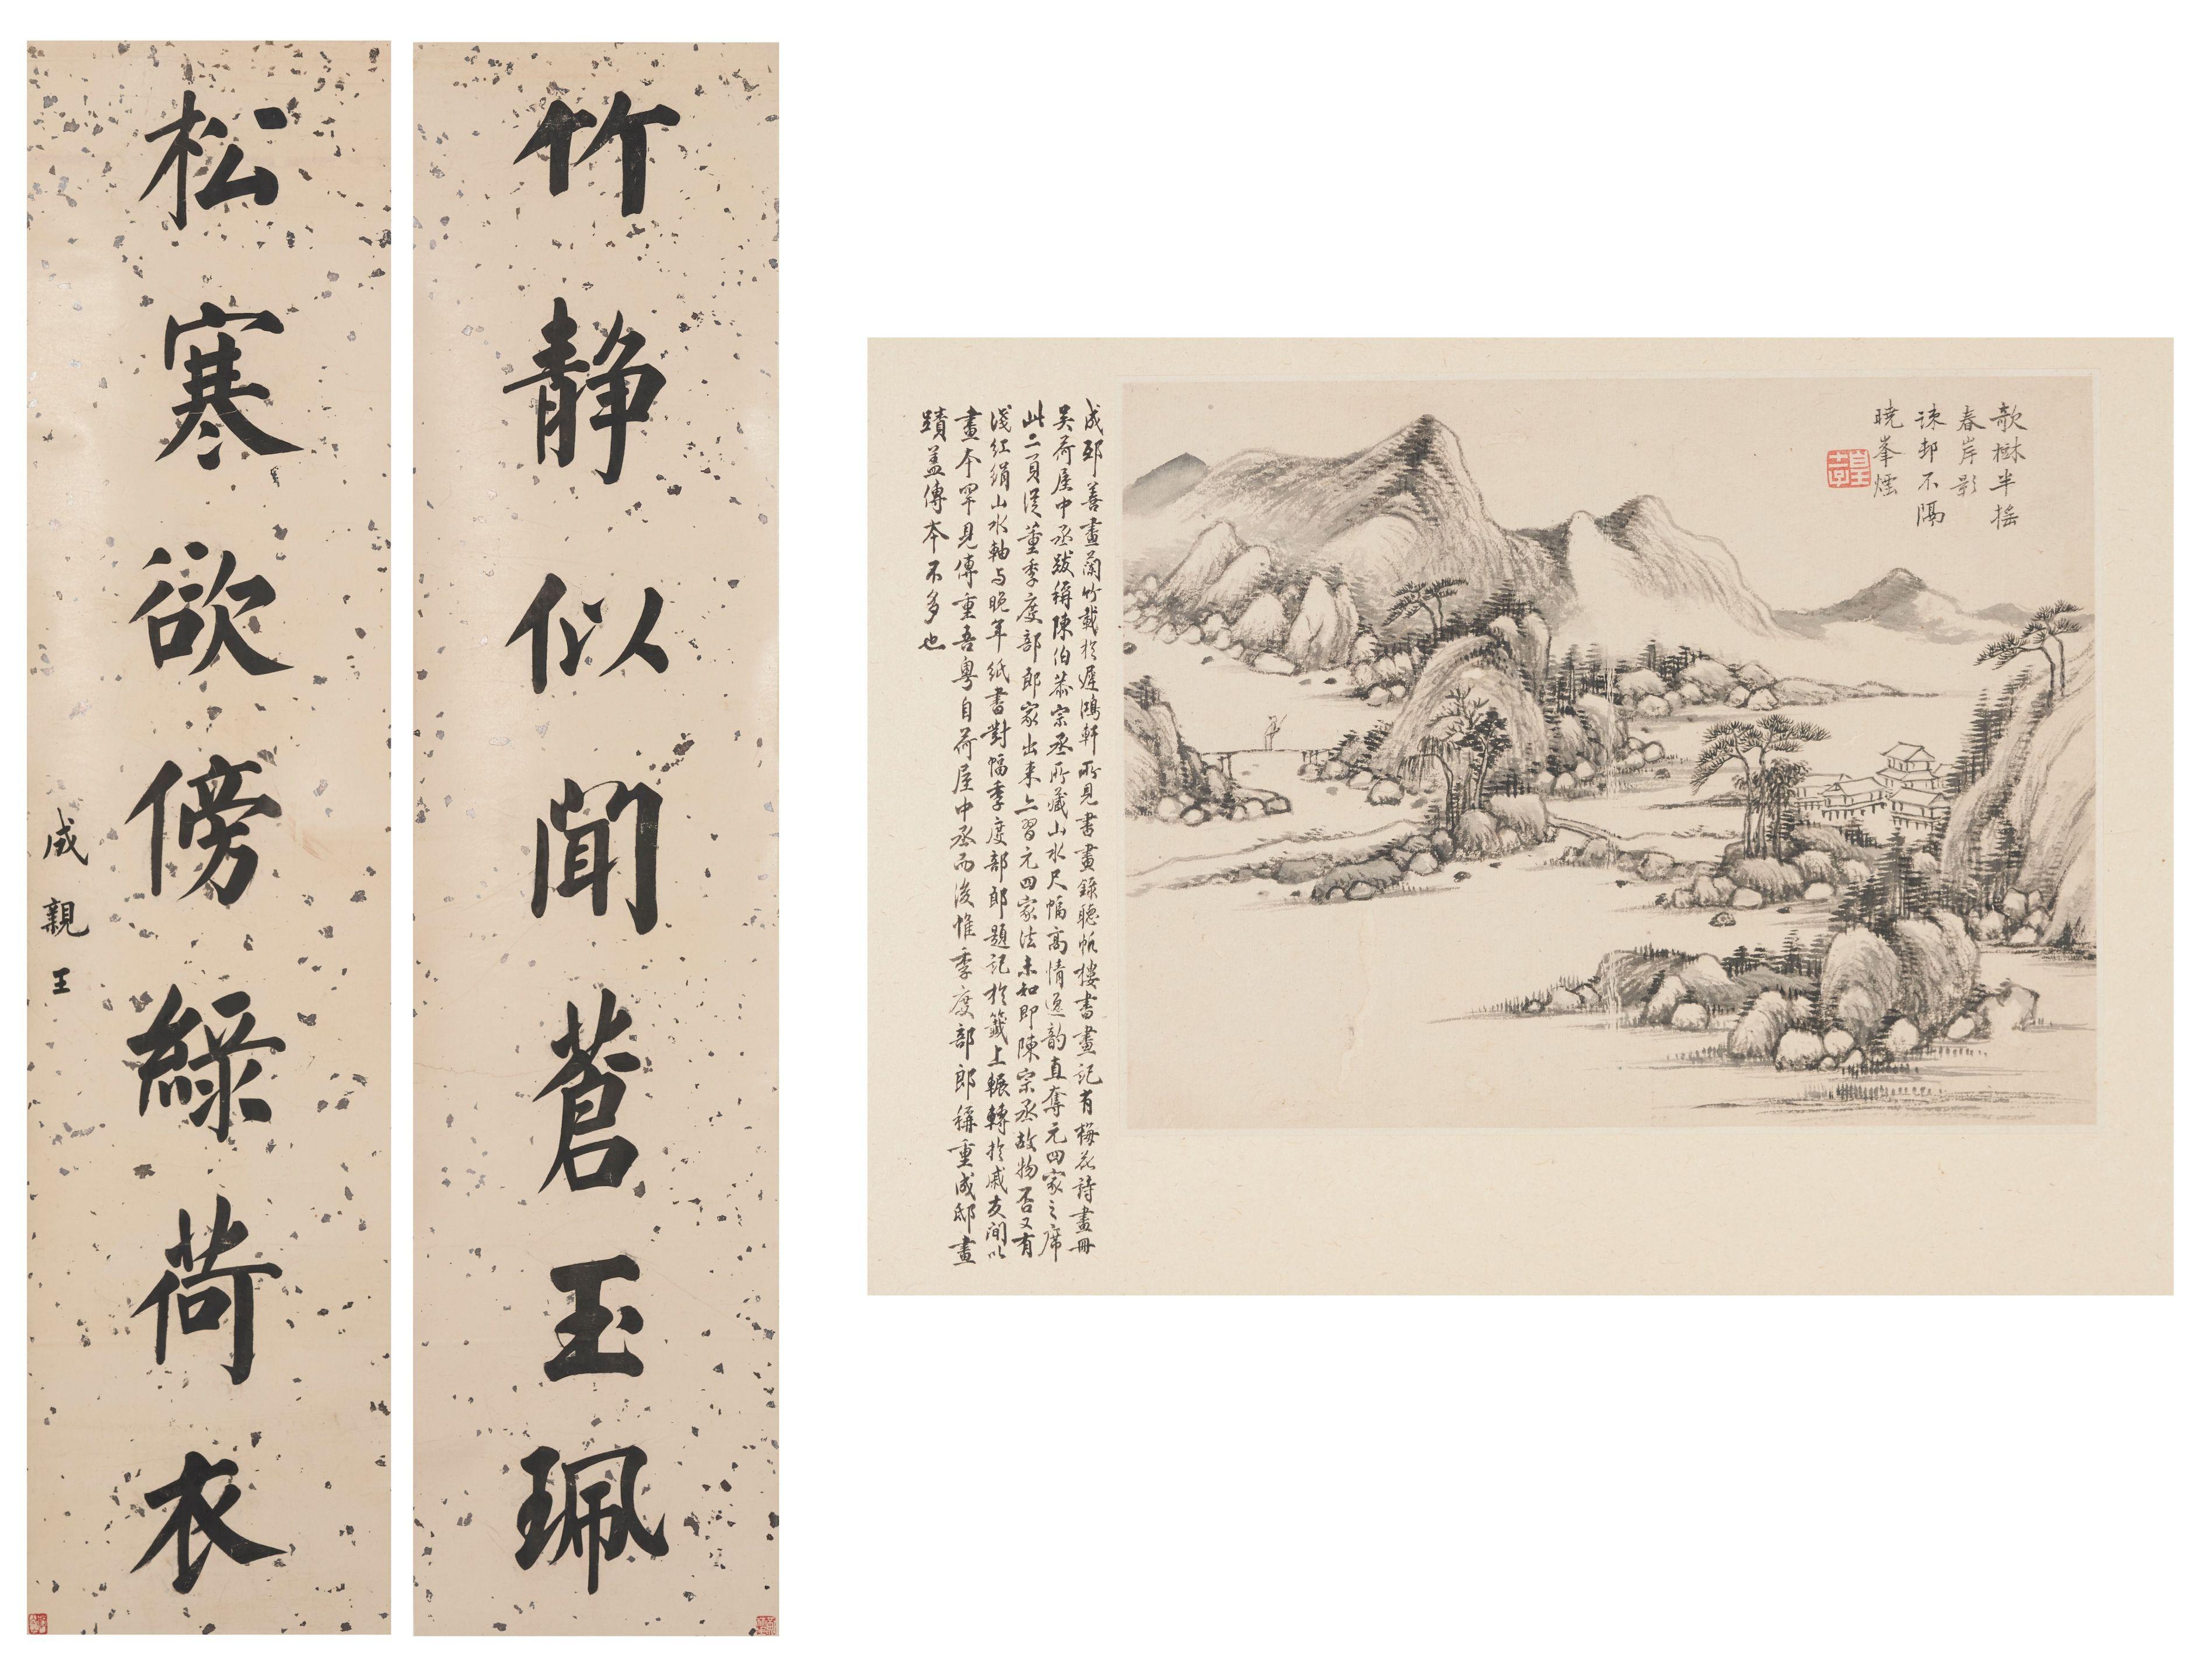 竹静似聞蒼玉珮
松寒欲傍綠荷衣
成親王
歌樹半摇
春岸影
踈邨不隔
曉峯煙
皇十一子
成邸善畫蘭竹載於遲鴻軒所見書畫錄聽颿樓書畫記有梅花詩畫冊
吴荷屋中丞跋稱陳伯恭宗丞所藏山水尺幅高情逸韵直奪元四家之席
此二頁從董季度部郎家出来上習元四家法未知即陳宗丞故物否又有
淺紅絹山水軸与晚年紙書對幅季度部郎題記於籤上輾轉於戚友間以
畫本罕見傳重吾粤自荷屋中丞而後惟季度部郎稱重成邸畫
蹟蓋傳本不多也